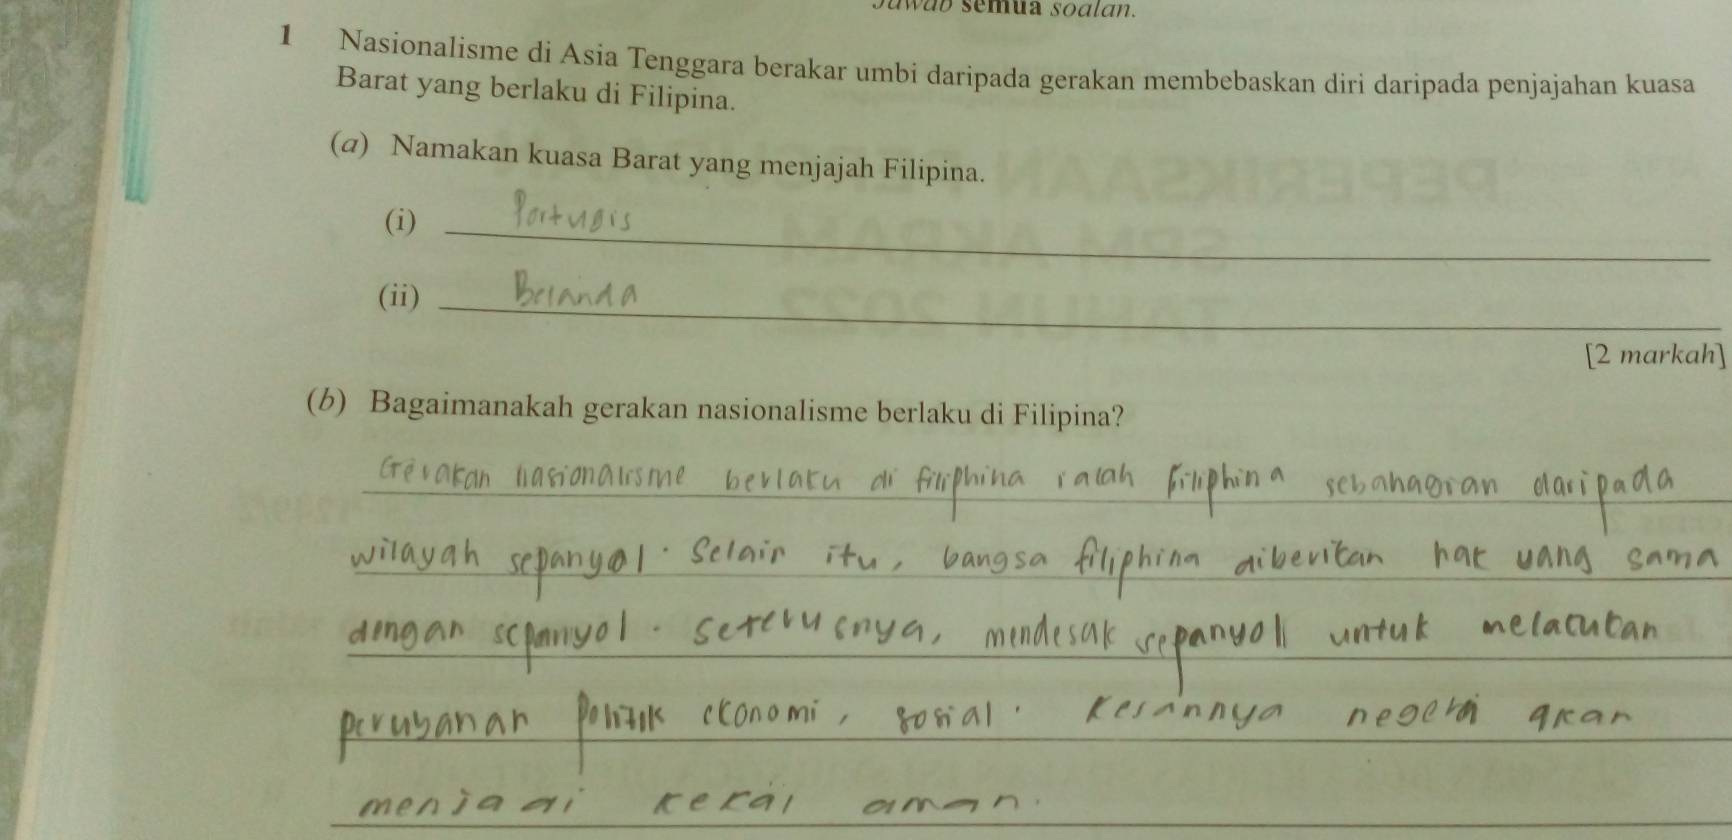 Jawab semua soalan.
1 Nasionalisme di Asia Tenggara berakar umbi daripada gerakan membebaskan diri daripada penjajahan kuasa
Barat yang berlaku di Filipina.
(a) Namakan kuasa Barat yang menjajah Filipina.
(i) Portugis
(ii) Belanda
[2 markah]
(b) Bagaimanakah gerakan nasionalisme berlaku di Filipina?
Gerakan nasionalisme berlaku di filiphina ialah Filiphina sebahagian daripada
wilayah sepanyol. Selain itu, bangsa filiphina diberikan hak yang sama
dengan sepanyol. Seterusnya, mendesak sepanyoll untuk melakukan
perubahan politik ekonomi, sosial. Kesannya negera akan
menjadi kekal aman.